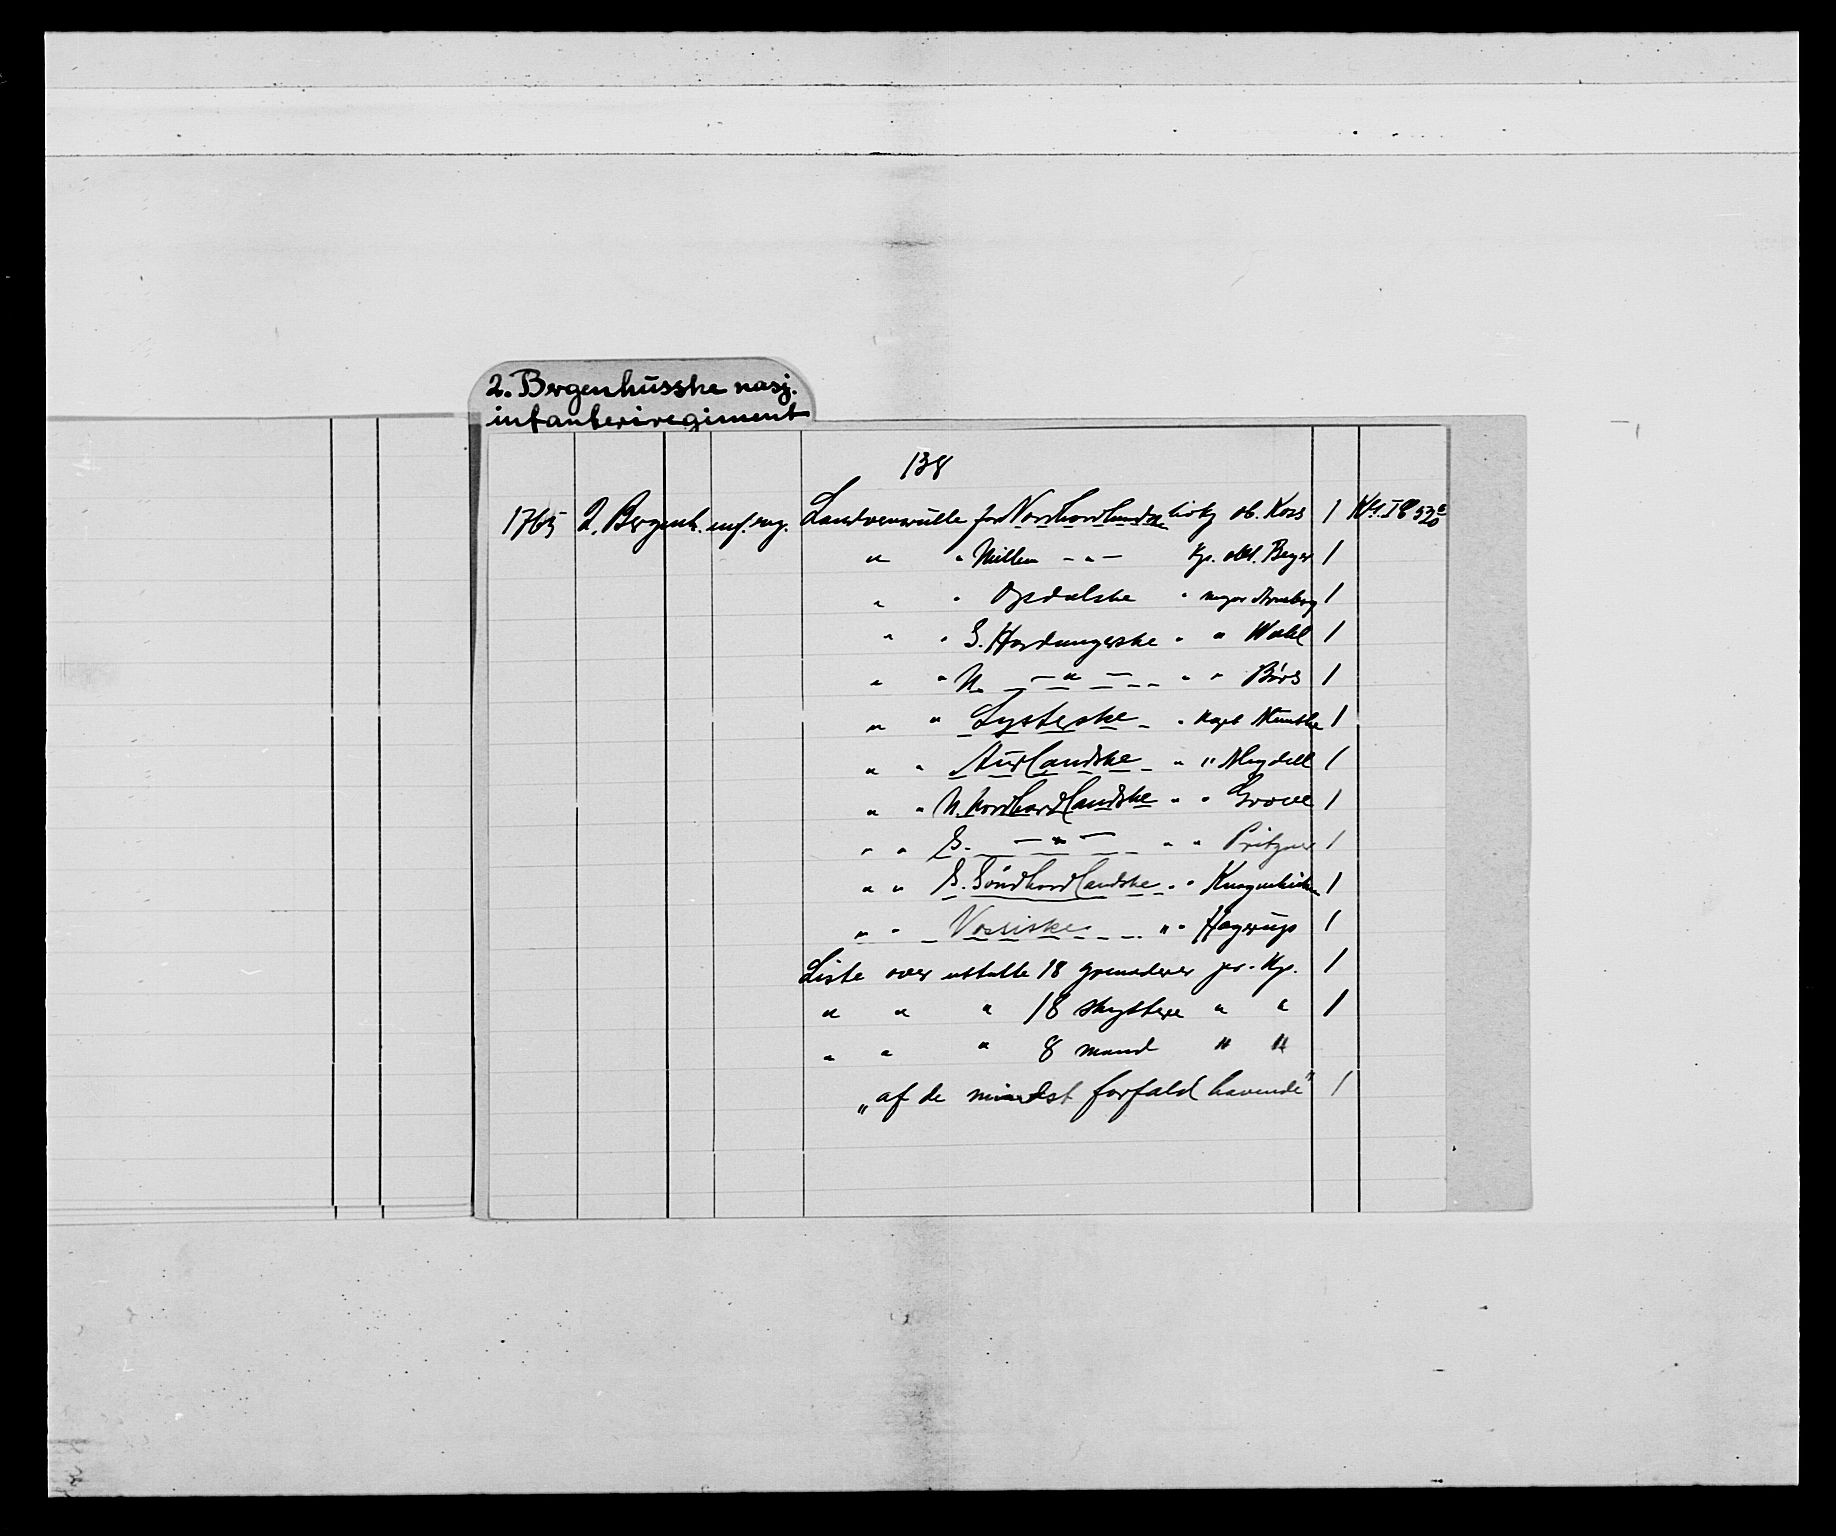 2. Bergenhusske nasj.
infanteriregiment
138
1765 2. Bergenh. inf. reg. Landvernrulle for Nordhordlandske livkp ob. Koss 1 Kk. I 8
" " Millem — " — kp. obl. Beyer 1
" " Opdalske " major Arneberg 1
" " S. Hardangerske " " Wahl 1
" " N. — " — " " Börs 1
" " Lysterske " kapt 1
" " Aurlandske " " Meydell 1
" " N. nordhordlandske " " Grove 1
" " S. — " — " " Pritzner 1
" " S. Söndhordlandske " " 1
" " Vossiske " " Hagerup 1
Liste over uttatte 18 grenaderer pr. kp. 1
" " " 18 skyttere " " 1
" " " 8 mand " "
"af de mindst forfald havende" 1